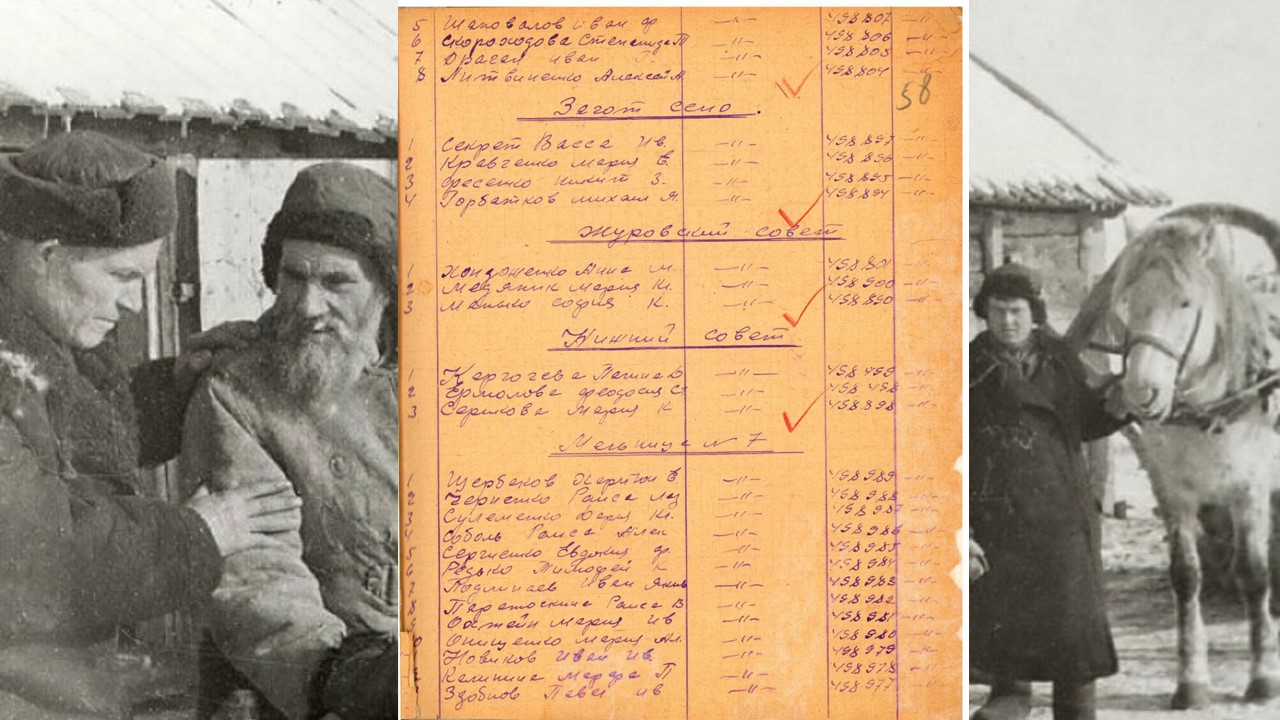 5 Шаповалов Иван Ф. —"— 458.807 —"—
6 Скороходова Степанида П —"— 458.806 —"—
7 Иван —"— 458.805 —"—
8 Литвиненко Алексей А —"— 458.804 —"—
58
Загот сено.
1 Секрет Васса Ив. —"— 458.897 —"—
2 Кравченко Мария Е. —"— 458.896 —"—
3 Фесенко Никит З. —"— 458.895 —"—
4 Горбатков Михаил Я. —"— 458.894 —"—
Журовский совет
1 Анна М. —"— 458.801 —"—
2 Медяник Мария К. —"— 458.900 —"—
3 Манько София К. —"— 458.890 —"—
Нижний совет
1 —"— 458.499 —"—
2 Ермолова Феодосия Ст —"— 458.498 —"—
3 Серикова Мария К —"— 458.898 —"—
Мельница N 7
1 Щербаков Харитон Е —"— 458.989 —"—
2 Черненко Раиса Лаз —"— 458.988 —"—
3 Сулеменко Дария К. —"— 458.987 —"—
4 Соболь Раиса Алек —"— 458.986 —"—
5 Сергиенко Евдокия Ф. —"— 458.985 —"—
6 Редько Тимофей К —"— 458.984 —"—
7 Подлипаев Иван Яков —"— 458.983 —"—
8 Раиса В —"— 458.982 —"—
Мария Ив —"— 458.981 —"—
Онищенко Мария Ал. —"— 458.980 —"—
Новиков Иван Ив. —"— 458.979 —"—
Калинина Марфа П —"— 458.978 —"—
Здобнов Павел Ив —"— 458.977 —"—